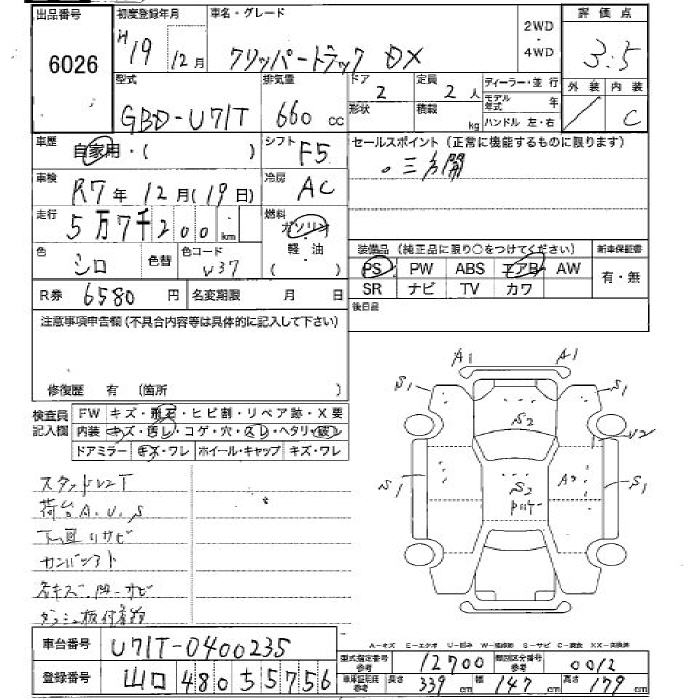 出品番号 初度登録年月 車名・グレード 2WD・4WD 評価点
6026 H19 12月 クリッパートラック DX 3.5
型式 排気量 ドア 2 定員 2人 ディーラー・並行 外装 内装
GBD-U71T 660cc 形状 積載 kg モデル年式 年 C
ハンドル 左・右
車歴 自家用・( ) シフト F5 セールスポイント(正常に機能するものに限ります)
車検 R7年12月(19日) 冷房 AC 三方開
走行 5万7千200km 燃料 ガソリン
軽・油
( )
色 シロ 色替 色コード W37 装備品(純正品に限り○をつけてください) 新車保証書
PS PW ABS エアB AW 有・無
R券 6580円 名変期限 月 日 SR ナビ TV カワ
注意事項申告欄(不具合内容等は具体的に記入して下さい) 後日品
修復歴 有 (箇所
検査員記入欄 FW キズ・飛石・ヒビ割・リペア跡・X要
内装 キズ・汚レ・コゲ・穴・スレ・ヘタリ・破レ
ドアミラー キズ・ワレ ホイール・キャップ キズ・ワレ
A1 A1
S1 S1
S2
U2
S1 A2 S1
S2
荷台A.U.S
下廻りサビ
各キズ・凹・サビ
車台番号 U71T-0400235
A-キズ E-エクボ U-凹み W-補修跡 S-サビ C-腐食 XX-交換済
型式指定番号 12700 類別区分番号 0012
登録番号 山口 480 5 5756
車車証明用参考 長さ 339cm 幅 147cm 高さ 179cm